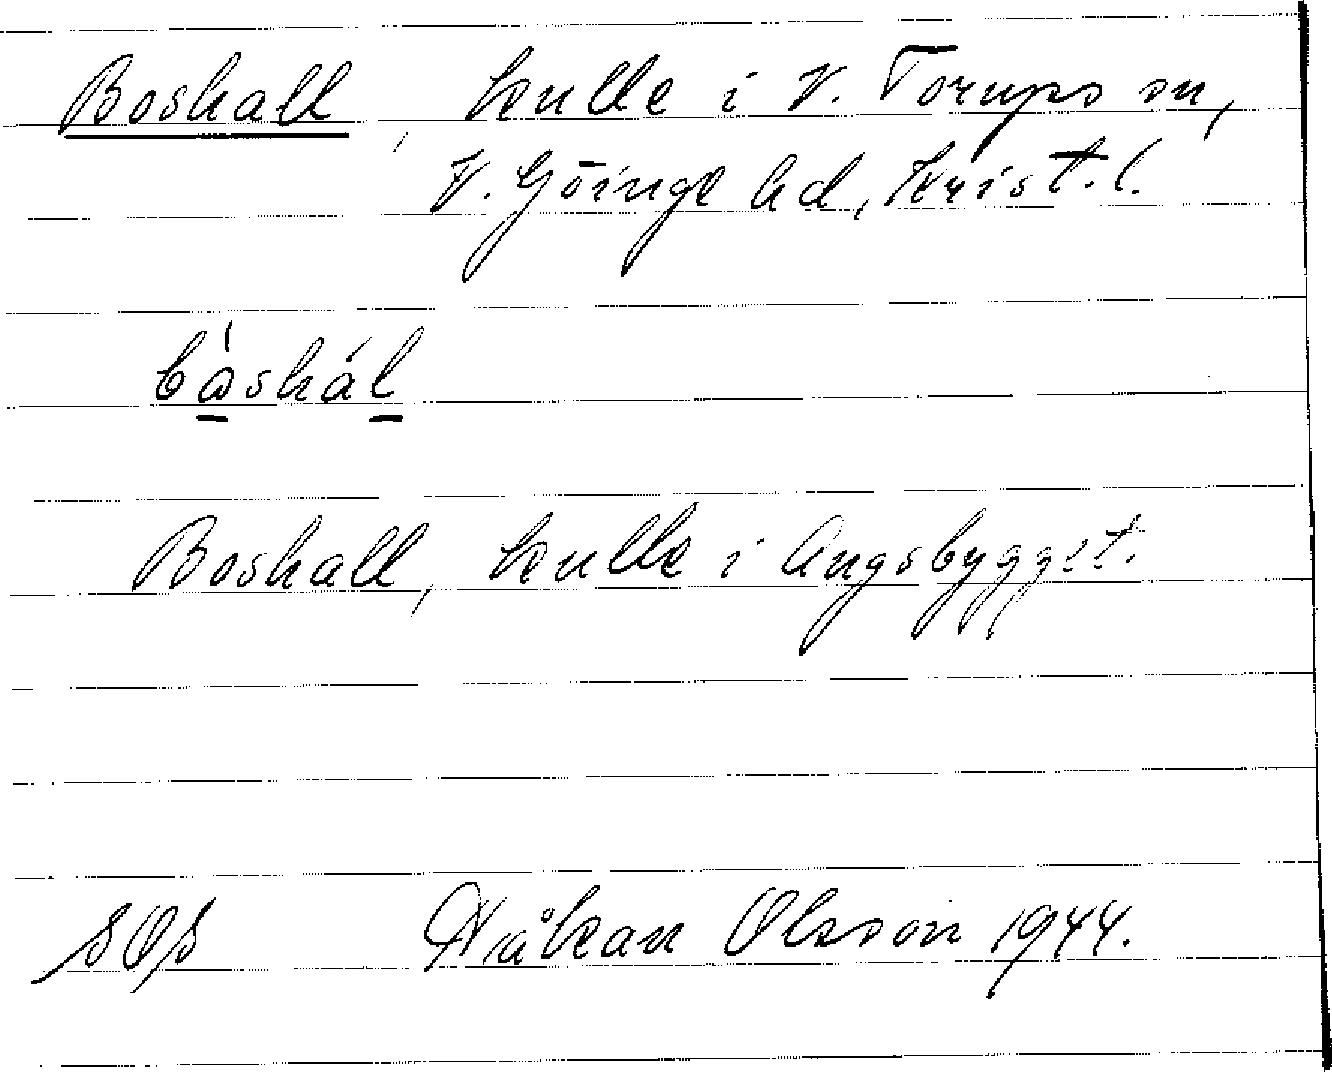 Boshall, kulle i V. Torups sn,
V. Göinge hd, Krist. l.
båshál
Boshall, kulle i Ängsbygget.
SOS Håkan Olsson 1944.